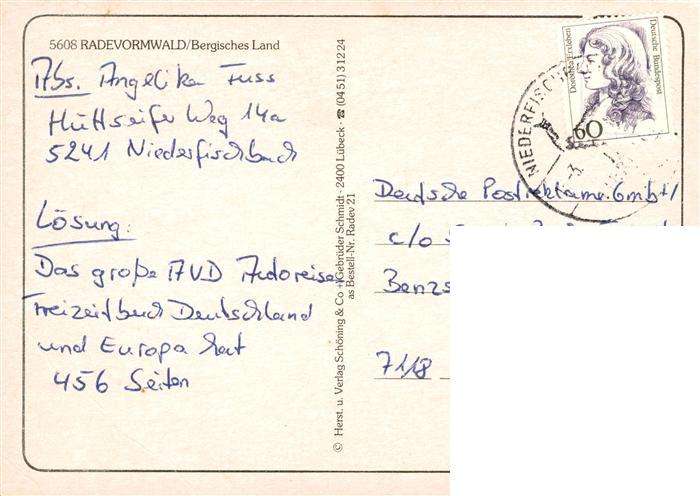 5608 RADEVORMWALD/Bergisches Land
Abs. Angelika Fuss
Hüttseifer Weg 14a
5241 Niederfischbach
Lösung:
Das große AVD Autoreise
Freizeitbuch Deutschland
und Europa hat
456 Seiten
© Herst. u. Verlag Schöning & Co + Gebrüder Schmidt · 2400 Lübeck · ☎ (04 51) 3 12 24
as Bestell-Nr. Radev 21
Dorothea Erxleben
Deutsche Bundespost
60
NIEDERFISCH
Deutsche Postreklame GmbH
c/o
Benzs